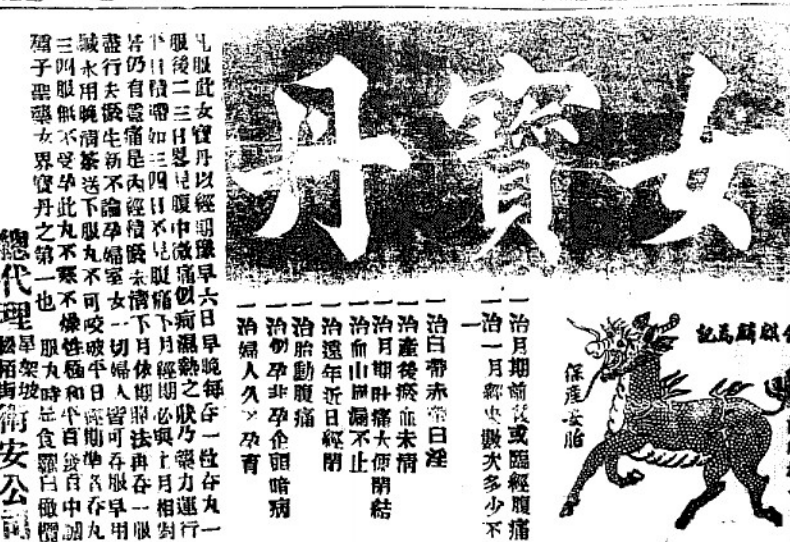 女寶丹
麒麟為記
保產安胎
一治月期前後或臨經腹痛
一治一月經來數次多少不一
一治白帶赤帶白淫
一治產後瘀血未清
一治月期肚痛大便閉結
一治血山崩漏不止
一治遠年近日經閉
一治胎動腹痛
一治倒孕非孕企頭暗病
一治婦人久不孕育
凡服此女寶丹以經期服早六日早晚每吞一粒吞丸一
服後二三日覺見腹中微痛似痾濕熱之狀乃藥力運行
下日積滯如三四日不見腹痛下月經期必與上月相對
若仍有震痛是內經積瘀未清下月依期照法再吞一服
盡行去瘀生新不論孕婦室女一切婦人皆可吞服早用
鹹水用晚清茶送下服丸不可咬破平日經期準者吞丸
三四服無不受孕此丸不寒不燥性極和平百發百中調
子聖藥女界寶丹之第一也 服丸時忌食蘿白橄欖
總代理
星架坡
松柏街
衛安公司